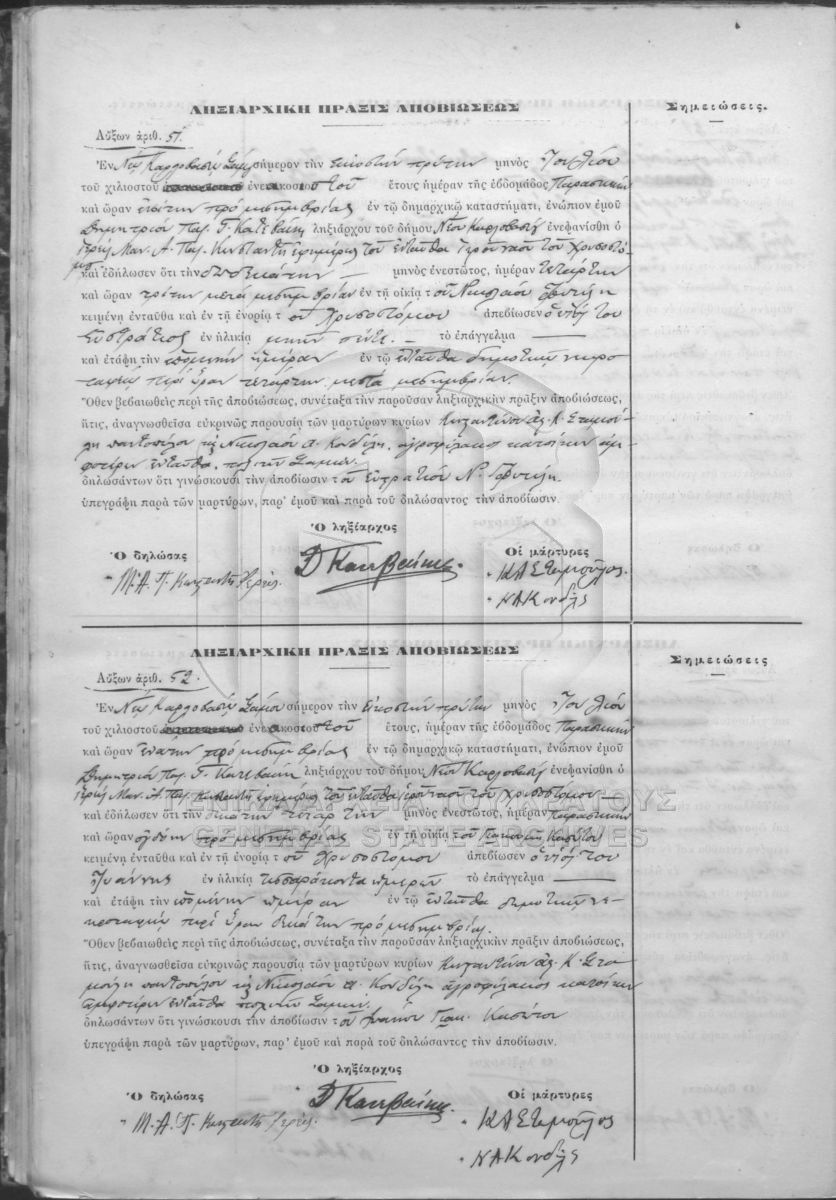 ΛΗΞΙΑΡΧΙΚΗ ΠΡΑΞΙΣ ΑΠΟΒΙΩΣΕΩΣ
Σημειώσεις.
Αὔξων ἀριθ. 51.
Ἐν Νέῳ Καρλοβασίῳ Σάμου σήμερον τὴν εἰκοστὴν πρώτην μηνὸς Ἰουλίου
τοῦ χιλιοστοῦ ἐνεακοσιοστοῦ ἔτους ἡμέραν τῆς ἑβδομάδος Παρασκευὴν
καὶ ὥραν ἐνάτην πρὸ μεσημβρίας ἐν τῷ δημαρχικῷ καταστήματι, ἐνώπιον ἐμοῦ
Δημητρίου Παπ. Γ. Κατεβαίνη ληξιάρχου τοῦ δήμου Νέου Καρλοβασίου ἐνεφανίσθη ὁ
ἱερεὺς Μαν. Α. Παπ. Κωνσταντῆ ἐφημέριος τοῦ ἐνταῦθα ἱεροῦ ναοῦ τοῦ Χρυσοστό-
μου
καὶ ἐδήλωσεν ὅτι τὴν δωδεκάτην μηνὸς ἐνεστῶτος, ἡμέραν τετάρτην
καὶ ὥραν τρίτην μετὰ μεσημβρίαν ἐν τῇ οἰκίᾳ τοῦ Νικολάου
κειμένῃ ἐνταῦθα καὶ ἐν τῇ ἐνορίᾳ τοῦ Χρυσοστόμου ἀπεβίωσεν ὁ υἱός του
Εὐστράτιος ἐν ἡλικίᾳ μηνῶν πέντε. τὸ ἐπάγγελμα
καὶ ἐτάφη τὴν ἑπομένην ἡμέραν ἐν τῷ ἐνταῦθα δημοτικῷ νεκρο-
ταφείῳ περὶ ὥραν τετάρτην μετὰ μεσημβρίαν.
Ὅθεν βεβαιωθεὶς περὶ τῆς ἀποβιώσεως, συνέταξα τὴν παροῦσαν ληξιαρχικὴν πρᾶξιν ἀποβιώσεως,
ἥτις, ἀναγνωσθεῖσα εὐκρινῶς παρουσίᾳ τῶν μαρτύρων κυρίων Κωνσταντίνου
παντοπώλου καὶ Νικολάου Α. Κονδύλη ἀγροφύλακος κατοίκων ἀμ-
φοτέρων ἐνταῦθα, πολιτῶν Σαμίων.
δηλωσάντων ὅτι γινώσκουσι τὴν ἀποβίωσιν τοῦ Εὐστρατίου Ν.
ὑπεγράφη παρὰ τῶν μαρτύρων, παρ' ἐμοῦ καὶ παρὰ τοῦ δηλώσαντος τὴν ἀποβίωσιν.
Ὁ ληξίαρχος
Ὁ δηλώσας
Οἱ μάρτυρες
Μ. Α. Π. Κωνσταντῆ Ἱερεύς.
Ν Α Κονδύλης
ΛΗΞΙΑΡΧΙΚΗ ΠΡΑΞΙΣ ΑΠΟΒΙΩΣΕΩΣ
Σημειώσεις
Αὔξων ἀριθ. 52.
Ἐν Νέῳ Καρλοβασίῳ Σάμου σήμερον τὴν εἰκοστὴν πρώτην μηνὸς Ἰουλίου
τοῦ χιλιοστοῦ ἐνεακοσιοστοῦ ἔτους, ἡμέραν τῆς ἑβδομάδος Παρασκευὴν
καὶ ὥραν ἐνάτην πρὸ μεσημβρίας ἐν τῷ δημαρχικῷ καταστήματι, ἐνώπιον ἐμοῦ
Δημητρίου Παπ. Γ. Κατεβαίνη ληξιάρχου τοῦ δήμου Νέου Καρλοβασίου ἐνεφανίσθη ὁ
ἱερεὺς Μαν. Α. Παπ. Κωνσταντῆ ἐφημέριος τοῦ ἐνταῦθα ἱεροῦ ναοῦ τοῦ Χρυσοστόμου
ΓΕΝΙΚΑ ΑΡΧΕΙΑ ΤΟΥ ΚΡΑΤΟΥΣ
καὶ ἐδήλωσεν ὅτι τὴν δεκάτην τετάρτην μηνὸς ἐνεστῶτος, ἡμέραν Παρασκευὴν
GENERAL STATE ARCHIVES
καὶ ὥραν ὀγδόην πρὸ μεσημβρίας ἐν τῇ οἰκίᾳ τοῦ
κειμένῃ ἐνταῦθα καὶ ἐν τῇ ἐνορίᾳ τοῦ Χρυσοστόμου ἀπεβίωσεν ὁ υἱός του
Ἰωάννης ἐν ἡλικίᾳ τεσσαράκοντα ἡμερῶν τὸ ἐπάγγελμα
καὶ ἐτάφη τὴν ἑπομένην ἡμέραν ἐν τῷ ἐνταῦθα δημοτικῷ νε-
κροταφείῳ περὶ ὥραν δεκάτην πρὸ μεσημβρίας.
Ὅθεν βεβαιωθεὶς περὶ τῆς ἀποβιώσεως, συνέταξα τὴν παροῦσαν ληξιαρχικὴν πρᾶξιν ἀποβιώσεως,
ἥτις, ἀναγνωσθεῖσα εὐκρινῶς παρουσίᾳ τῶν μαρτύρων κυρίων Κωνσταντίνου
παντοπώλου καὶ Νικολάου Α. Κονδύλη ἀγροφύλακος κατοίκων
ἀμφοτέρων ἐνταῦθα πολιτῶν Σαμίων.
δηλωσάντων ὅτι γινώσκουσι τὴν ἀποβίωσιν τοῦ Ἰωάννου
ὑπεγράφη παρὰ τῶν μαρτύρων, παρ' ἐμοῦ καὶ παρὰ τοῦ δηλώσαντος τὴν ἀποβίωσιν.
Ὁ ληξίαρχος
Ὁ δηλώσας
Οἱ μάρτυρες
Μ. Α. Π. Κωνσταντῆ Ἱερεύς.
Ν Α Κονδύλης